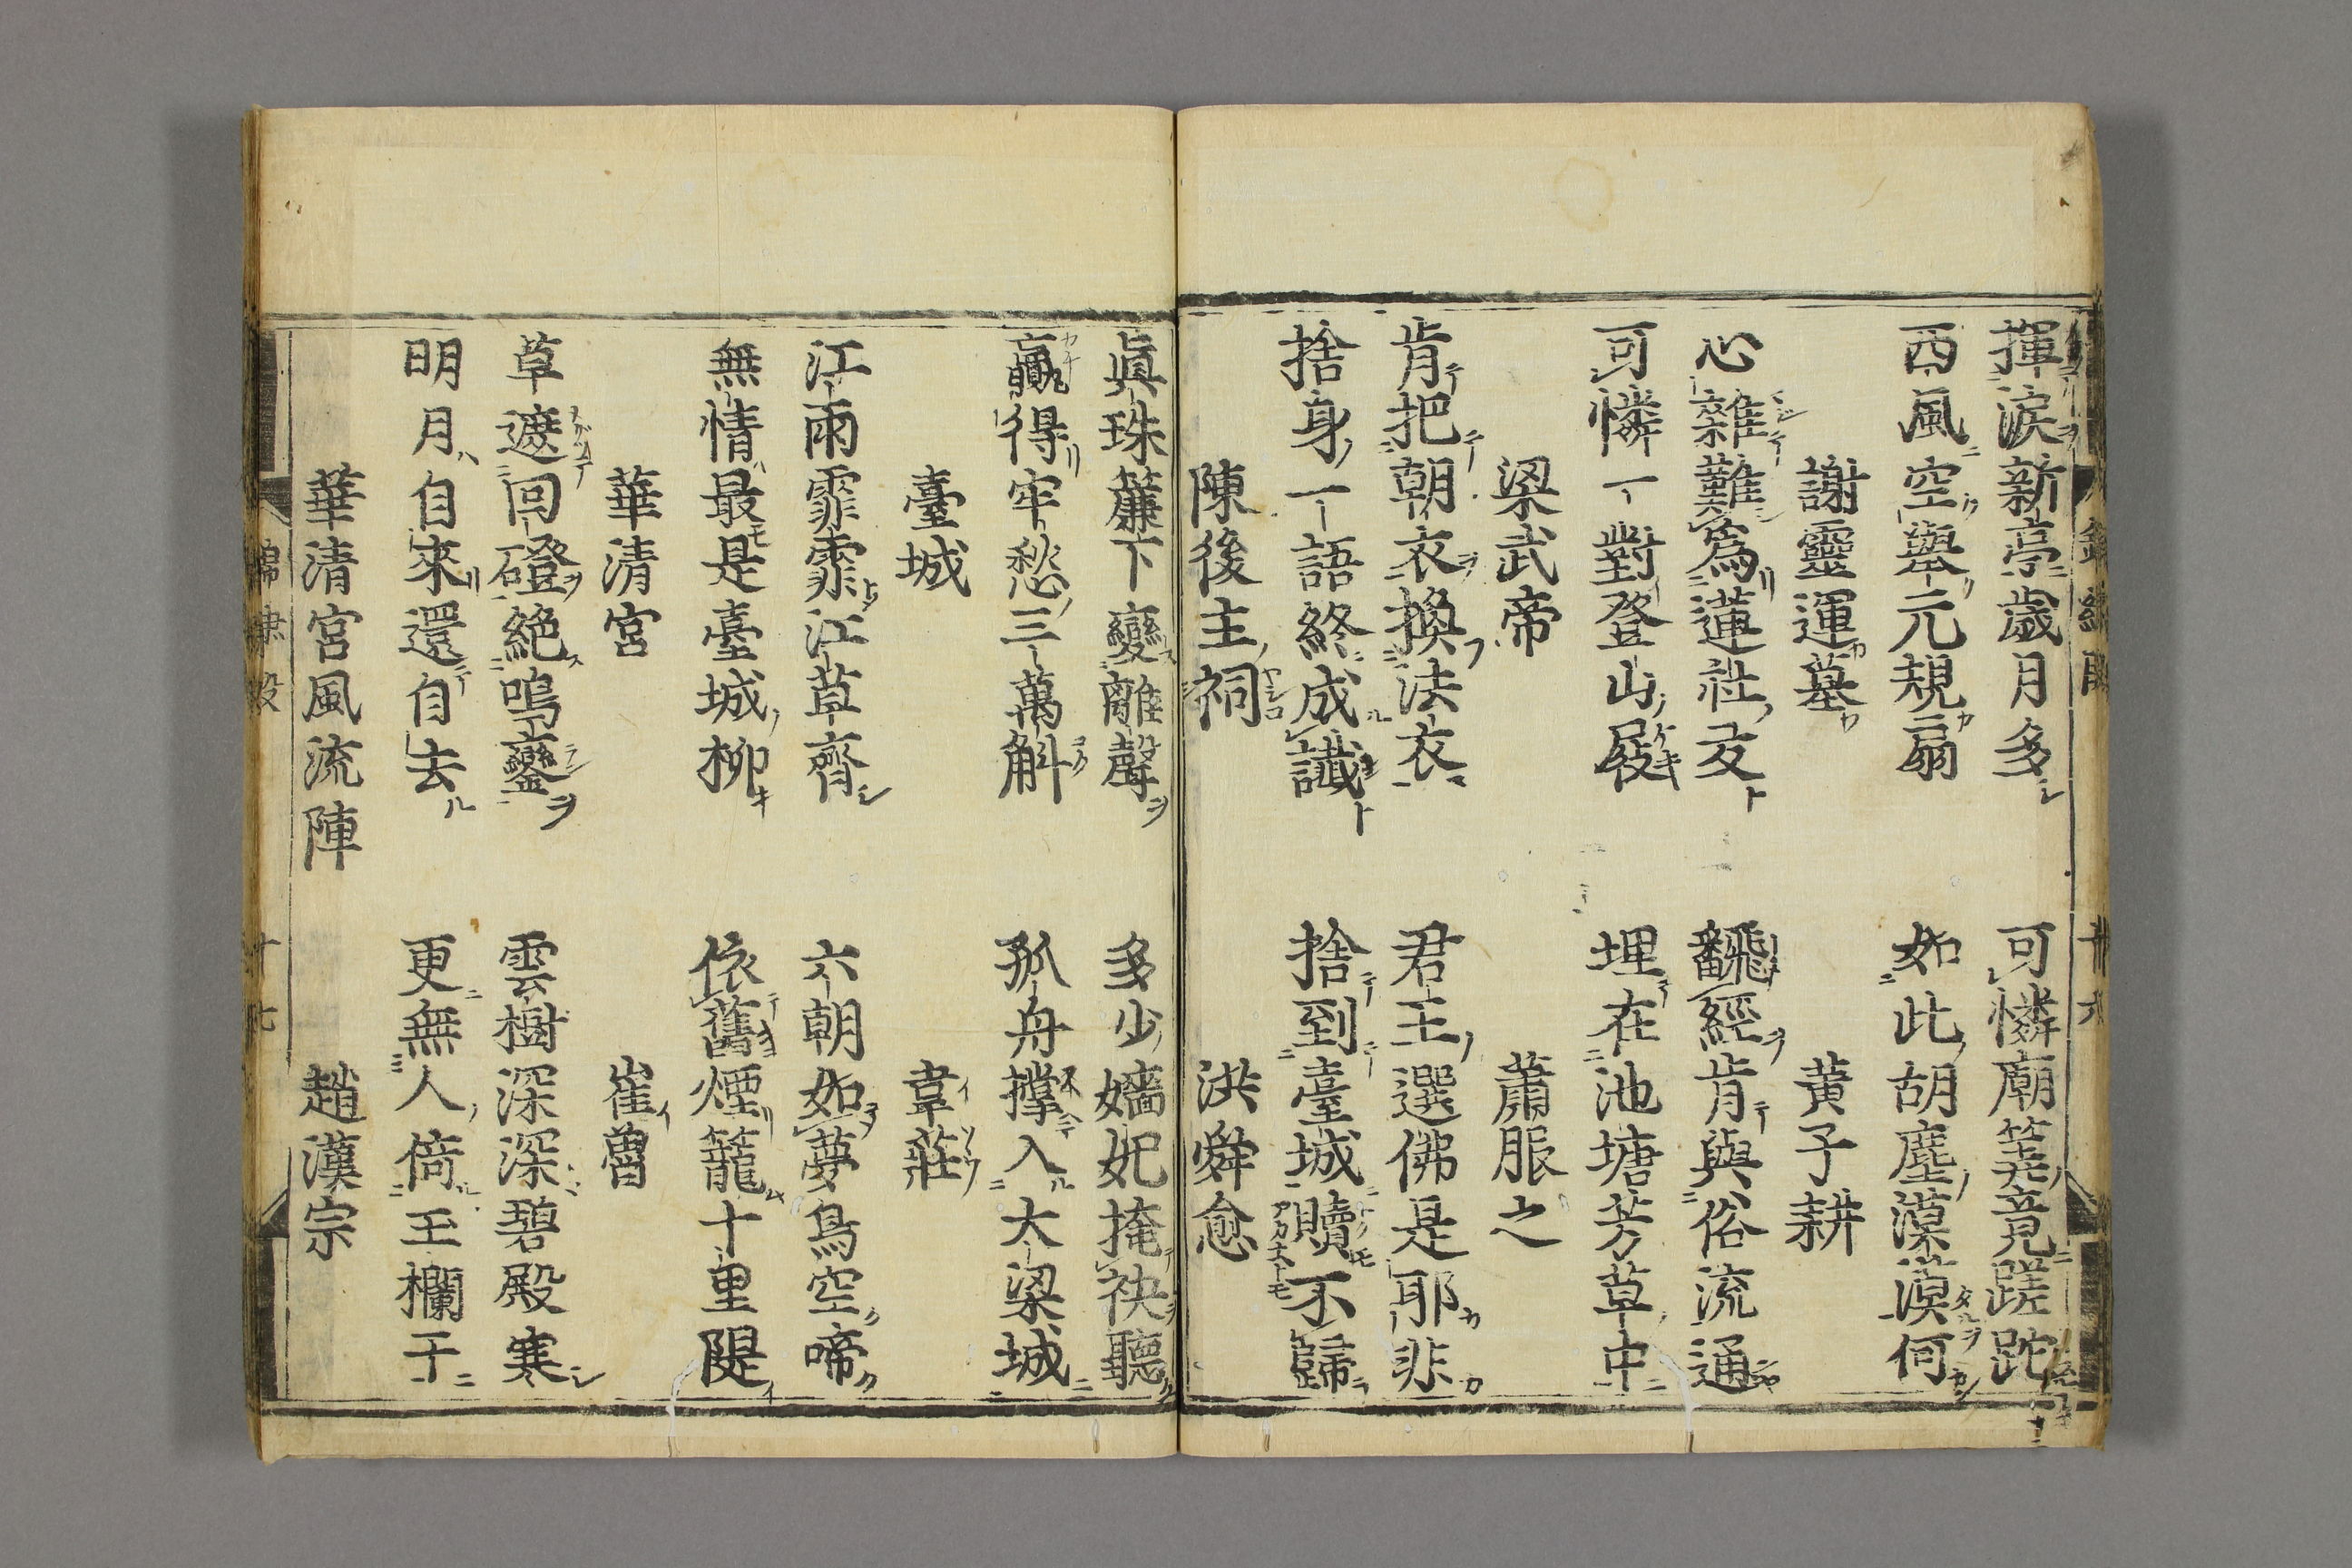 揮淚新亭歲月多　可憐廟筭竟蹉跎
西風空舉元規扇　如此胡塵漠漠何
謝靈運墓　黃子耕
心雜難爲蓮社友　飜經肯與俗流通
可憐一對登山屐　埋在池塘芳草中
梁武帝　蕭服之
肯把朝衣換法衣　君王選佛是耶非
捨身一語終成讖　捨到臺城贖不歸
陳後主祠　洪舜愈
眞珠簾下變離聲　多少嬙妃掩袂聽
贏得牢愁三萬斛　孤舟撑入大梁城
臺城　韋莊
江雨霏霏江草齊　六朝如夢鳥空啼
無情最是臺城柳　依舊煙籠十里隄
華清宮　崔曾
草遮回磴絕鳴鑾　雲樹深深碧殿寒
明月自來還自去　更無人倚玉欄干
華清宮風流陣　趙漢宗